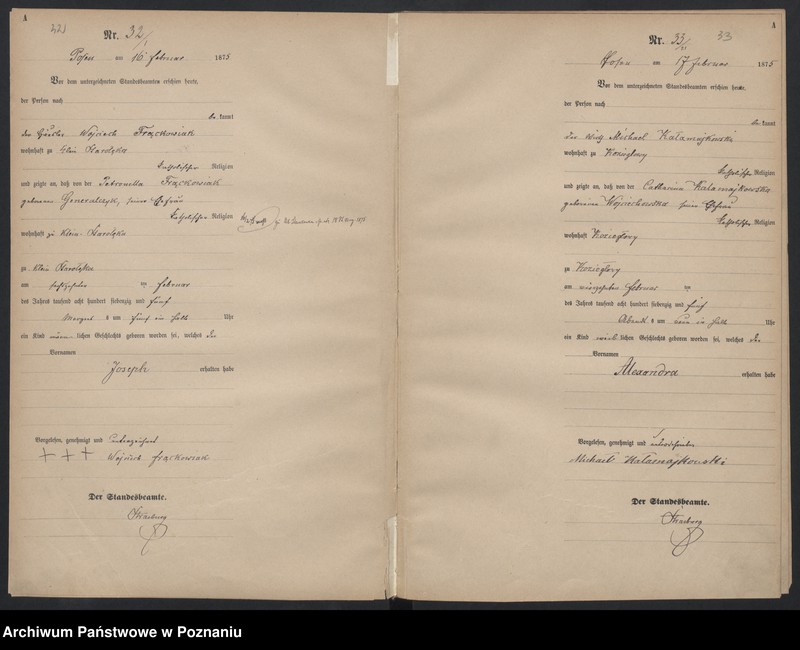 A
32)
Nr. 32/1
Posen am 16 Februar 1875
Vor dem unterzeichneten Standesbeamten erschien heute,
der Person nach
be kannt
der Wojciech Frąckowiak
wohnhaft zu Klein Starolęka
katholischer Religion
und zeigte an, daß von der Petronella Frąckowiak
geborene Generalczyk, seine Ehefrau
katholischer Religion
wohnhaft zu Klein-Starolęka
zu Klein Starolęka
am ten Februar
des Jahres tausend acht hundert siebenzig und fünf
Morgens um fünf ein halb Uhr
ein Kind männ lichen Geschlechts geboren worden sei, welches den
Vornamen
Joseph erhalten habe
Vorgelesen, genehmigt und unterzeichnet
+ + + Wojciech Frąckowiak
Der Standesbeamte.
A
33
Nr. 33/
Posen am 17 Februar 1875
Vor dem unterzeichneten Standesbeamten erschien heute,
der Person nach
be kannt
der Michael Kałamajkowski
wohnhaft zu Kozieglowy
katholischer Religion
und zeigte an, daß von der Catharina Kałamajkowska
geborene Wojciechowska seine Ehefrau
katholischer Religion
wohnhaft Kozieglowy
zu Kozieglowy
am vierzehnten Februar
des Jahres tausend acht hundert siebenzig und fünf
Abends um halb Uhr
ein Kind weib lichen Geschlechts geboren worden sei, welches den
Vornamen
Alexandra erhalten habe
Vorgelesen, genehmigt und unterschrieben
Michael Kałamajkowski
Der Standesbeamte.
Archiwum Państwowe w Poznaniu